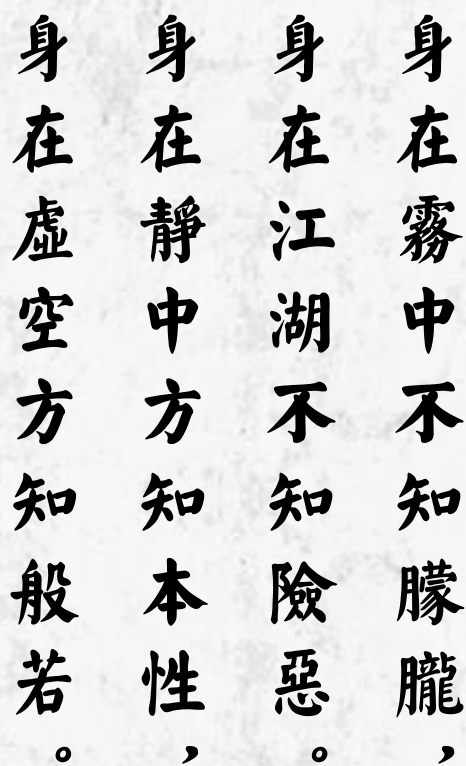 身在霧中不知朦朧，
身在江湖不知險惡。
身在靜中方知本性，
身在虛空方知般若。